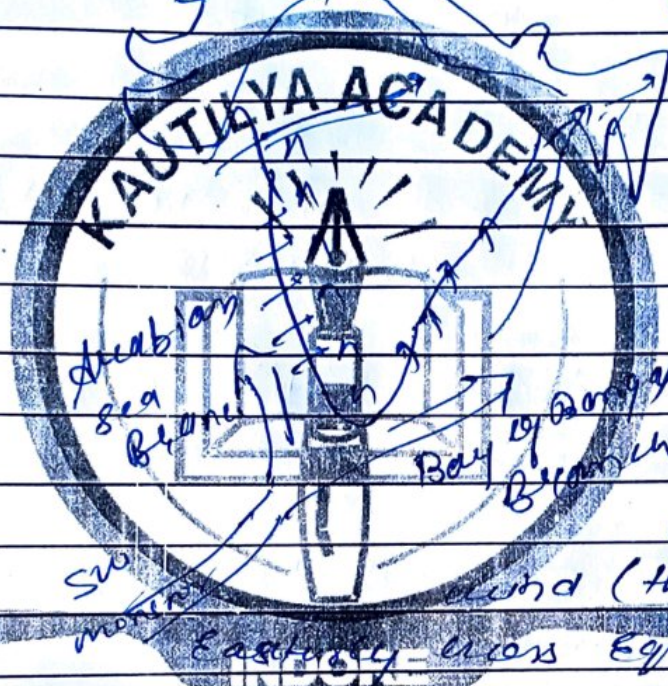 KAUTILYA ACADEMY
Arabian
sea
Branch
Bay of Bengal
Branch
SW
monsoon
wind (H
Easterly cross Eq
INDORE